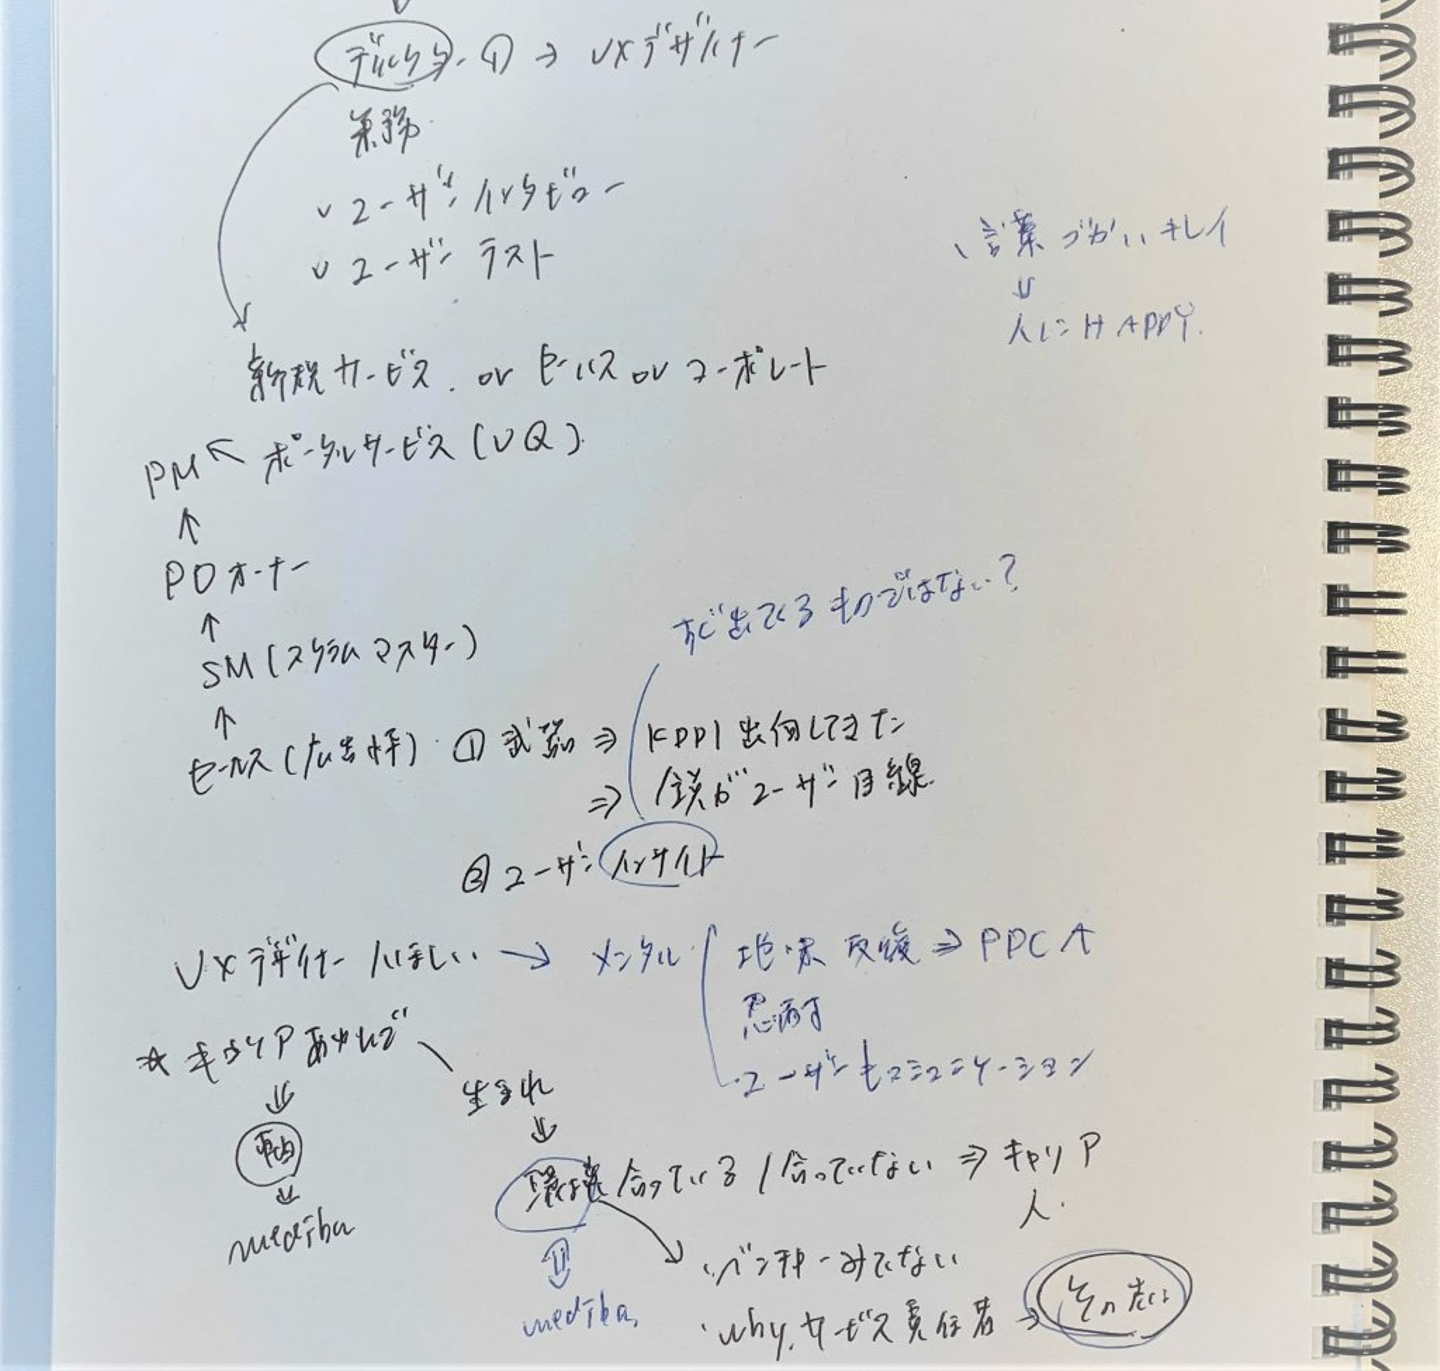 ディレクター ① ⇒ UXデザイナー
業務
✓ ユーザーインタビュー
✓ ユーザーテスト
、言葉づかいキレイ
⇓
人に HAPPY.
新規サービス. or セールス or コーポレート
PM ← ポータルサービス (UQ).
↑
POオーナー
↑
すぐ出てくるものではない?
SM (スクラムマスター)
↑
セールス (広告枠) ① 武器 ⇒ KDDI 出向してきた
⇒ 鏡がユーザー目線
② ユーザーインサイト
UXデザイナー ほしい → メンタル 地味 反復 ⇒ PDCA
忍耐
・ユーザーもコミュニケーション
☆ キャリア あゆんで
⇓
生まれ
⇓
軸
⇓
mediba
環境 合っている / 合っていない ⇒ キャリア
人.
⇓
mediba,
・ベンチャーみてない
・why. サービス責任者 →